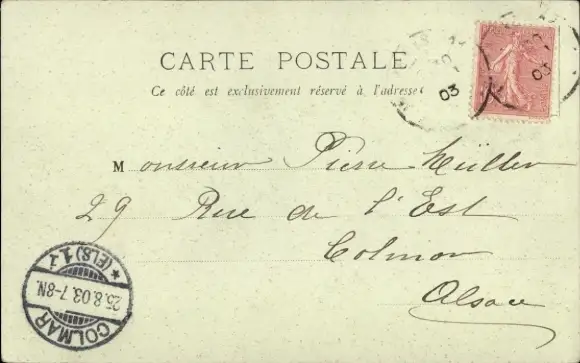 CARTE POSTALE
Ce côté est exclusivement réservé à l'adresse
03
03
Monsieur Pierre Müller
29 Rue de l'Est
Colmar
Alsace
COLMAR
25.8.03.7-8N.
* (ELS) 1.z